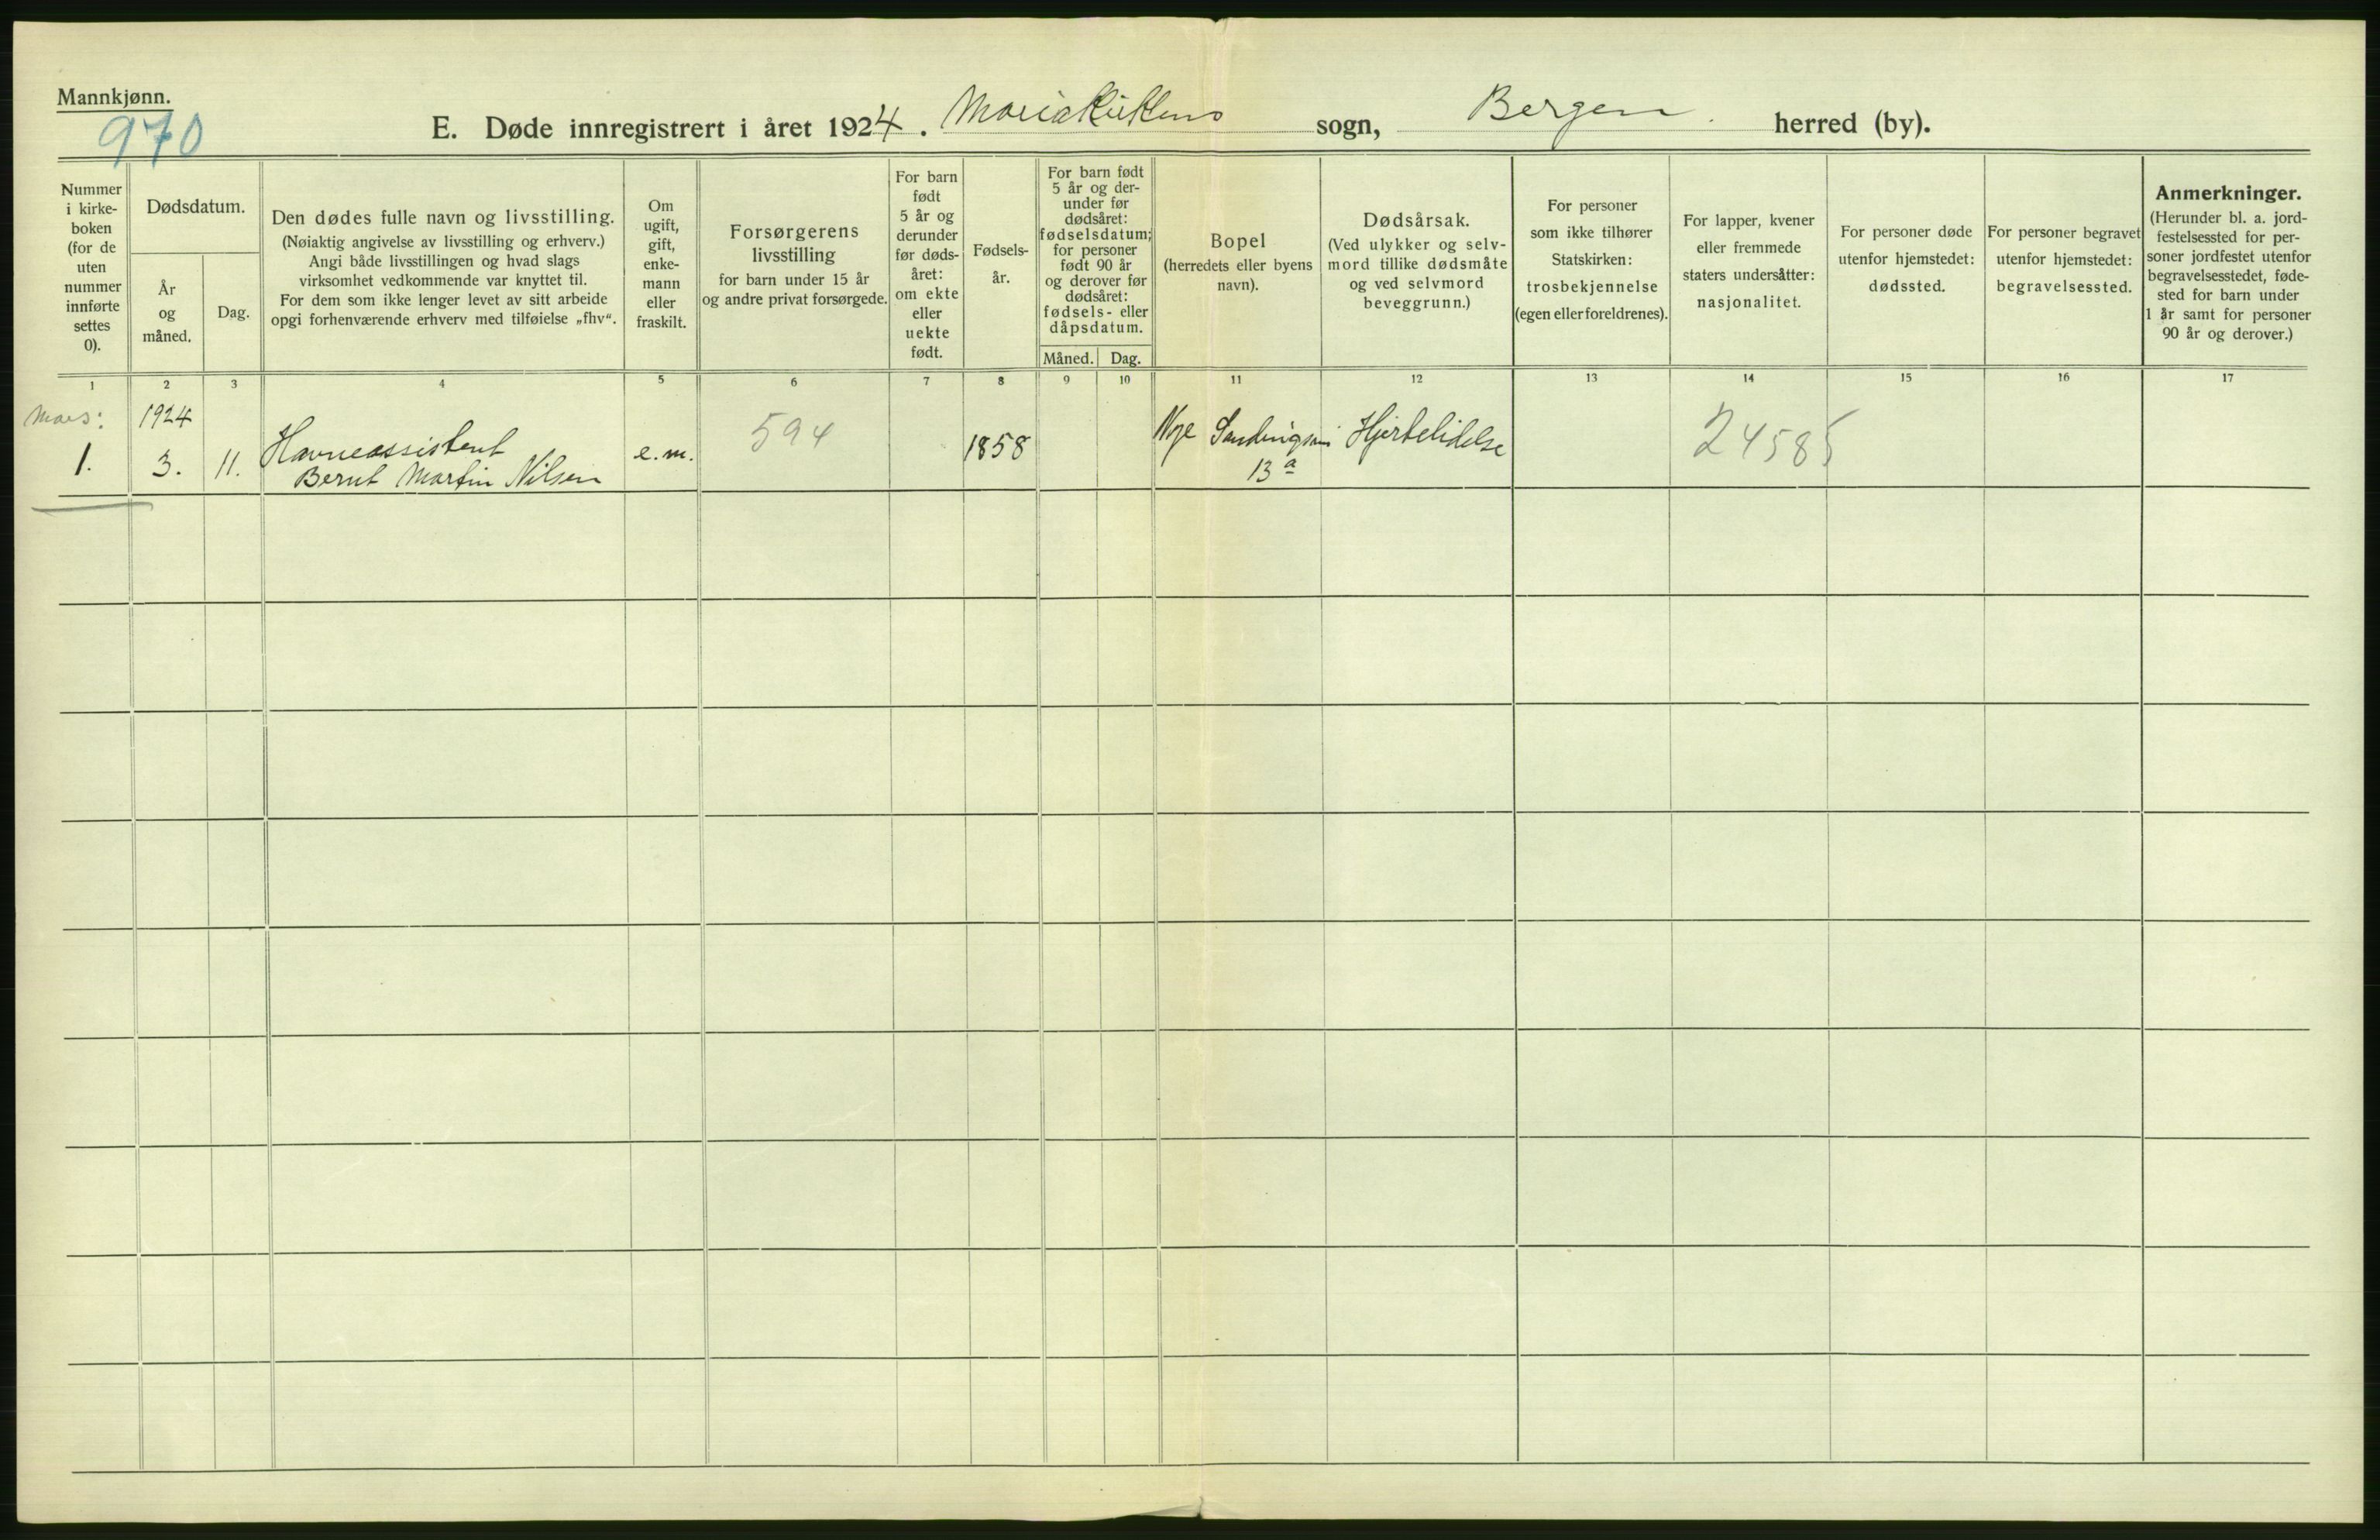 Mannkjønn.
970
E. Døde innregistrert i året 1924. Mariakirkens sogn, Bergen. herred (by).
Nummer
i kirke-
boken
(for de
uten
nummer
innførte
settes
0).
Dødsdatum.
År
og
måned.
Dag.
Den dødes fulle navn og livsstilling.
(Nøiaktig angivelse av livsstilling og erhverv.)
Angi både livsstillingen og hvad slags
virksomhet vedkommende var knyttet til.
For dem som ikke lenger levet av sitt arbeide
opgi forhenværende erhverv med tilføielse „fhv“.
Om
ugift,
gift,
enke-
mann
eller
fraskilt.
Forsørgerens
livsstilling
for barn under 15 år
og andre privat forsørgede.
For barn
født
5 år og
derunder
før døds-
året:
om ekte
eller
uekte
født.
Fødsels-
år.
For barn født
5 år og der-
under før
dødsåret:
fødselsdatum;
for personer
født 90 år
og derover før
dødsåret:
fødsels- eller
dåpsdatum.
Måned. Dag.
Bopel
(herredets eller byens
navn).
Dødsårsak.
(Ved ulykker og selv-
mord tillike dødsmåte
og ved selvmord
beveggrunn.)
For personer
som ikke tilhører
Statskirken:
trosbekjennelse
(egen eller foreldrenes).
For lapper, kvener
eller fremmede
staters undersåtter:
nasjonalitet.
For personer døde
utenfor hjemstedet:
dødssted.
For personer begravet
utenfor hjemstedet:
begravelsessted.
Anmerkninger.
(Herunder bl. a. jord-
festelsessted for per-
soner jordfestet utenfor
begravelsesstedet, føde-
sted for barn under
1 år samt for personer
90 år og derover.)
1 2 3 4 5 6 7 8 9 10 11 12 13 14 15 16 17
Mars: 1924
1. 3. 11. Havneassistent e.m. 594 1858 Nye Hjertelidelse 24585
Bernt Martin Nilsen 13 a